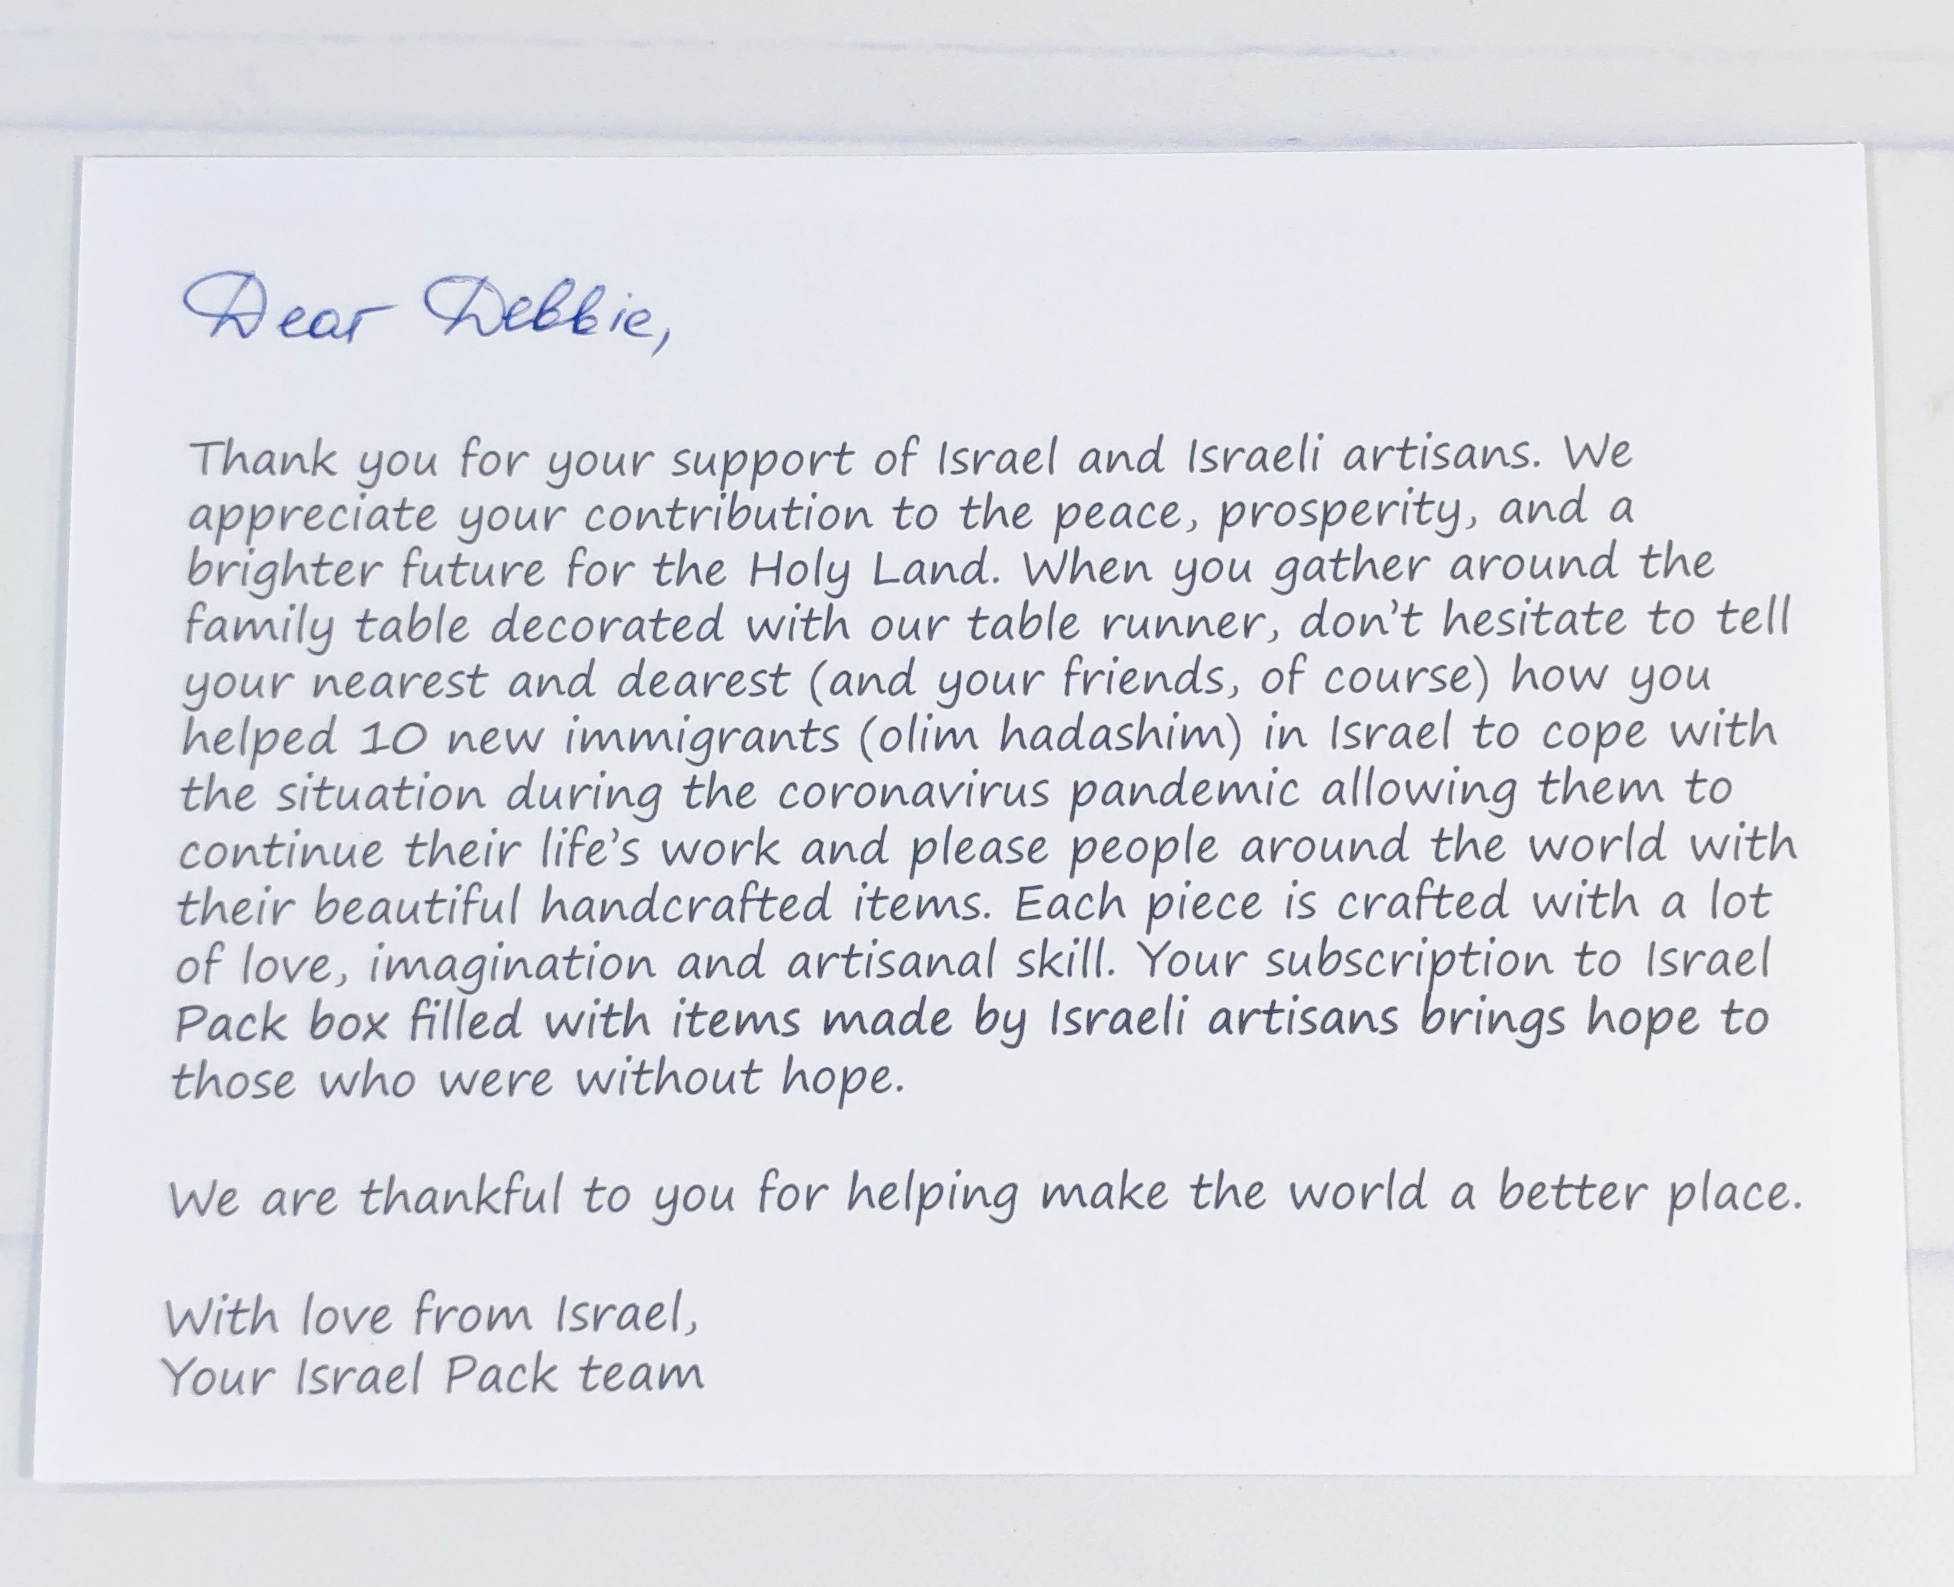 Dear Debbie,
Thank you for your support of Israel and Israeli artisans. We
appreciate your contribution to the peace, prosperity, and a
brighter future for the Holy Land. When you gather around the
family table decorated with our table runner, don't hesitate to tell
your nearest and dearest (and your friends, of course) how you
helped 10 new immigrants (olim hadashim) in Israel to cope with
the situation during the coronavirus pandemic allowing them to
continue their life's work and please people around the world with
their beautiful handcrafted items. Each piece is crafted with a lot
of love, imagination and artisanal skill. Your subscription to Israel
Pack box filled with items made by Israeli artisans brings hope to
those who were without hope.
We are thankful to you for helping make the world a better place.
With love from Israel,
Your Israel Pack team